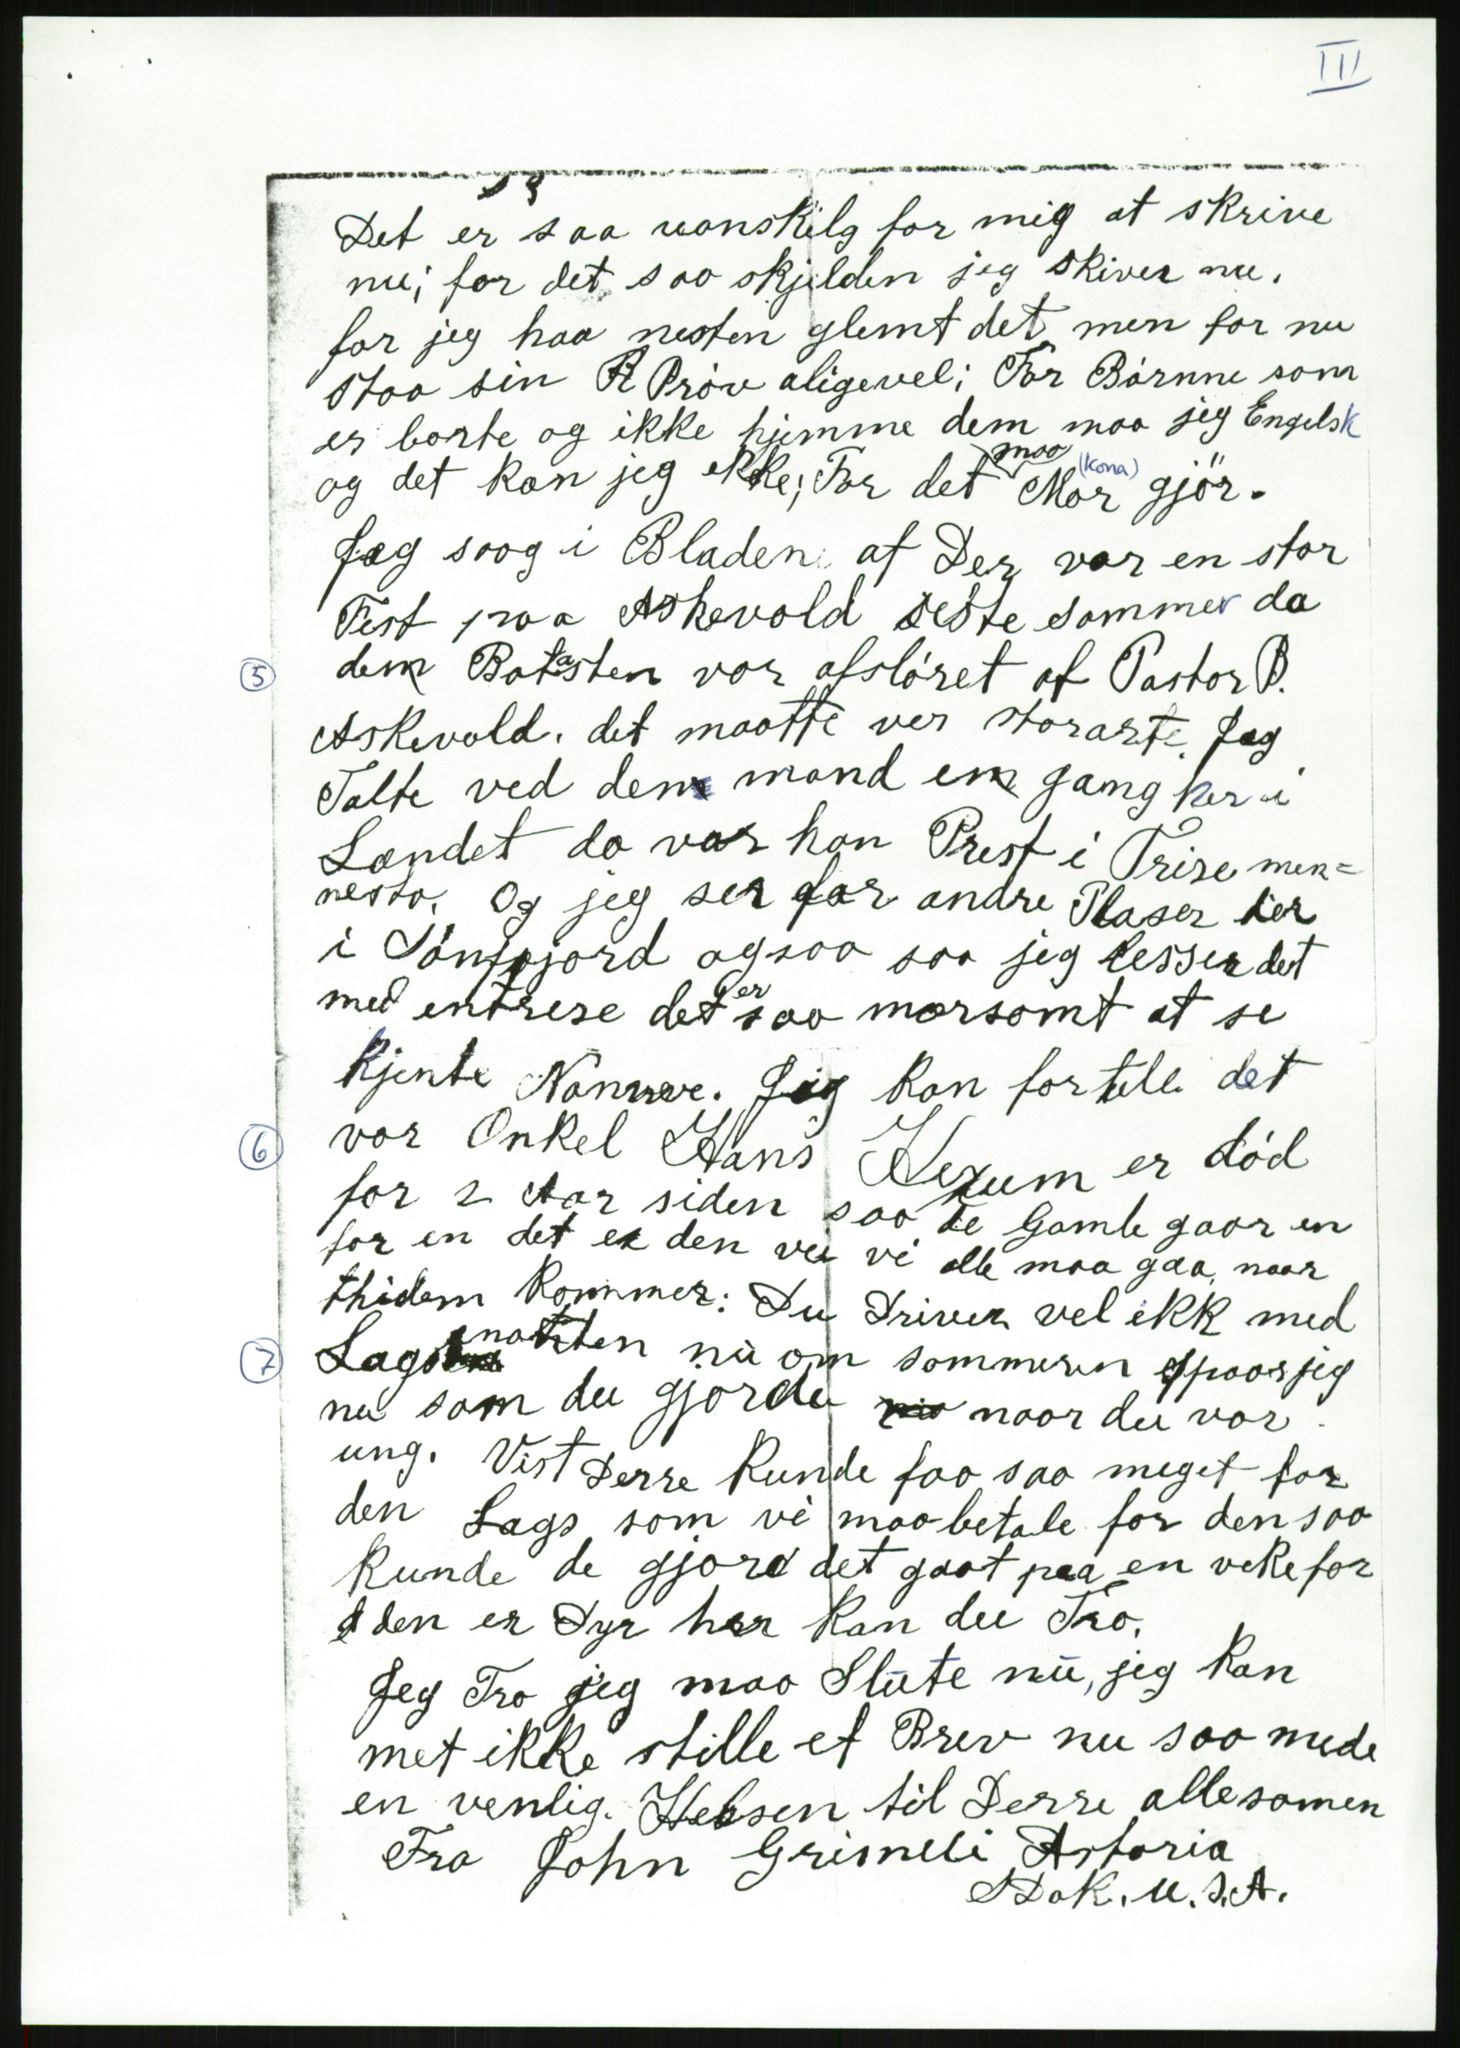 III
Det er saa vanskilg for mig at skrive
nu; for det saa skjelden jeg skiver nu.
for jeg haa nesten glemt det men for nu
staa sin Prøv aligevel; For Børnne som
er borte og ikke hjemme dem maa jeg Engelsk
og det kan jeg ekke; For det maa Mor (Kona) gjör.
Jeg saag i Bladen at Der var en stor
Fest paa Askevold seste sommer da
⑤ dem Batasten var afsløret af Pastor B.
Askevold. det maatte ver storarte. Jeg
Talte ved dem mand em gang her i
Landet da var han Prest i Trise men=
nesto. Og jeg ser far andre Plaser her
i Sønfjord ogsaa saa jeg lesser det
med entrese det er saa morsomt at se
kjente Namne. Jeg kan fortele det
⑥ vor Onkel Hans Hexum er død
for 2 Aar siden saa de Gamle gaar en
for en det er den vei vi alle maa gaa naar
thidem kommer: Du Driver vel ikk med
⑦ Lagsnotten nu om sommeren spaar jeg
nu som du gjorde naar du var
ung. Vist Derre kunde faa saa meget for
den Lags som vi maa betale for den saa
kunde de gjord det gaat paa en veke for
den er Dyr her kan du Tro.
Jeg Tro jeg maa Slute nu, jeg kan
met ikke stille et Brev nu saa mede
en venlig. Helsen til Derre allesamen
Fra John Grimeli Astoria
S Dak. U.S.A.